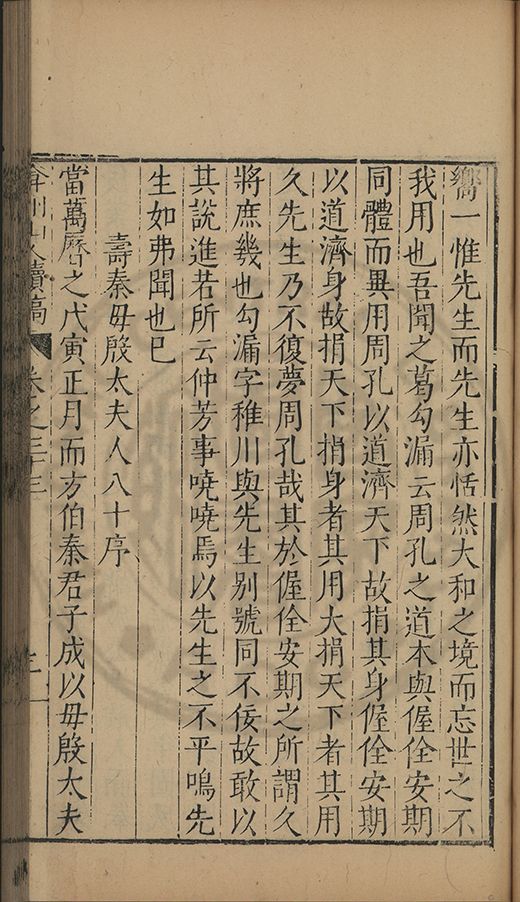 嚮一惟先生而先生亦恬然大和之境而忘世之不
我用也吾聞之葛勾漏云周孔之道本與偓佺安期
同體而異用周孔以道濟天下故捐其身偓佺安期
以道濟身故捐天下捎身者其用大捐天下者其用
久先生乃不復夢周孔哉其於偓佺安期之所謂久
將庶幾也勾漏字稚川與先生别號同不佞故敢以
其說進若所云仲芳事嘵嘵焉以先生之不平鳴先
生如弗聞也已
壽秦毋殷太夫人八十序
當萬曆之戊寅正月而方伯秦君子成以毋殷太夫
弇州山人續稿 卷之三十三